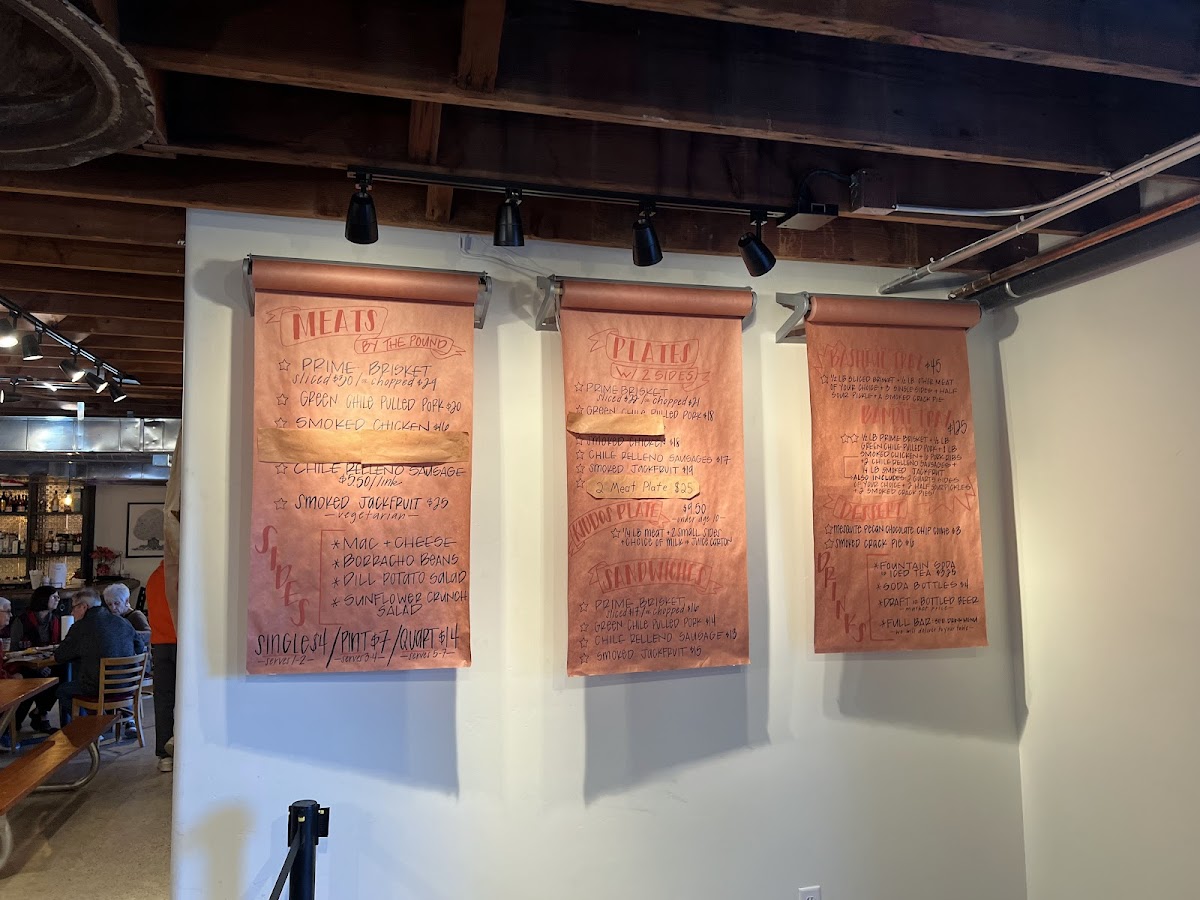 MEATS
BY THE POUND
PRIME BRISKET
GREEN CHILE PULLED PORK $20
SMOKED CHICKEN $16
CHILE RELLENO SAUSAGE
$5.50/link
SMOKED JACKFRUIT $25
-vegetarian-
SIDES
* MAC + CHEESE
* BORRACHO BEANS
* DILL POTATO SALAD
* SUNFLOWER CRUNCH
SALAD
SINGLES 4 / PINT $7 / QUART $14
-serves 1-2- -serves 3-4- -serves 5-7-
PLATES
W/ 2 SIDES
PRIME BRISKET
GREEN CHILE PULLED PORK $18
SMOKED CHICKEN $18
CHILE RELLENO SAUSAGES $17
SMOKED JACKFRUIT $19
2 Meat Plate $25
KIDDOS PLATE $9.50
-under age 10-
1/4 LB MEAT + 2 SMALL SIDES
+ CHOICE OF MILK or JUICE CARTON
SANDWICHES
PRIME BRISKET
sliced $17/or chopped $16
GREEN CHILE PULLED PORK $14
CHILE RELLENO SAUSAGE $13
SMOKED JACKFRUIT $15
$45
1/2 LB SLICED BRISKET + 1/2 LB OTHER MEAT
OF YOUR CHOICE + 3 SINGLE SIDES + HALF
SOUR PICKLE + 2 SMOKED CRACK PIE
$125
1/2 LB PRIME BRISKET + 1/2 LB
GREEN CHILE PULLED PORK + 1 LB
SMOKED CHICKEN + PORK RIBS
+ 2 CHILE RELLENO SAUSAGES +
1/4 LB SMOKED JACKFRUIT
-ALSO INCLUDES: 2 QUARTS SIDES
OF YOUR CHOICE + 2 HALF SOUR PICKLES
+ 2 SMOKED CRACK PIES
DESSERT
MESQUITE PECAN CHOCOLATE CHIP COOKIE $3
SMOKED CRACK PIE $6
DRINKS
* FOUNTAIN SODA
or ICED TEA $3.25
* SODA BOTTLES $4
* DRAFT or BOTTLED BEER
-market price-
* FULL BAR
-we will deliver to your table-